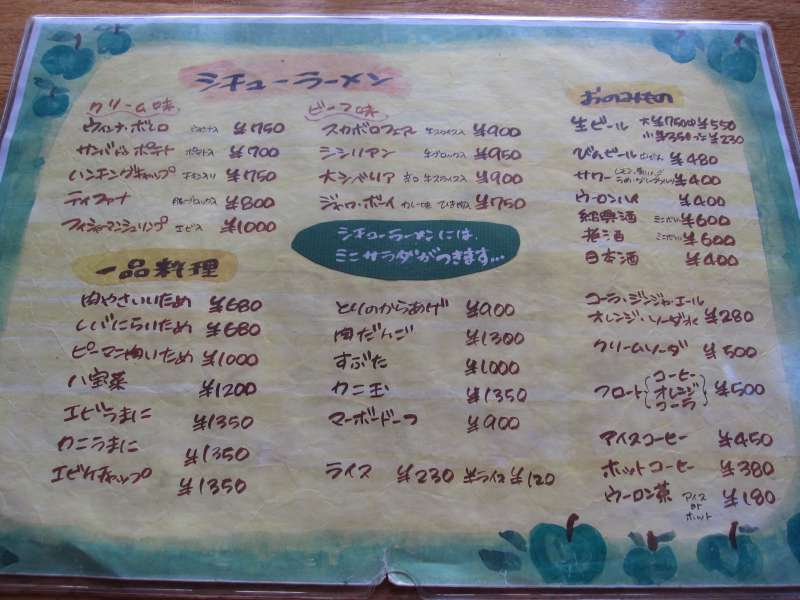 シチューラーメン
クリーム味
ウィンナ・ボレロ ¥750
サンバ・ド・ポテト ポテト入 ¥700
ハンチングキャップ チキン入り ¥750
ティファナ ¥800
フィシャーマンシュリンプ エビ入 ¥1000
ビーフ味
スカボロフェアー 牛スライス入 ¥900
シシリアン 牛ブロック入 ¥950
大シベリア 辛口 牛スライス入 ¥900
ジャワ・ボーイ カレー味 ひき肉入 ¥750
シチューラーメンには、
ミニサラダがつきます…
一品料理
肉やさいいため ¥680
レバにらいため ¥680
ピーマン肉いため ¥1000
八宝菜 ¥1200
エビうまに ¥1350
カニうまに ¥1350
エビケチャップ ¥1350
とりのからあげ ¥900
肉だんご ¥1300
すぶた ¥1000
カニ玉 ¥1350
マーボードーフ ¥900
ライス ¥230 半ライス ¥120
おのみもの
生ビール 大¥750 中¥550
小¥350 ¥230
びんビール ¥480
サワー ¥400
ウーロンハイ ¥400
紹興酒 ¥600
老酒 ¥600
日本酒 ¥400
コーラ・ジンジャエール
オレンジ・ソーダ水 ¥280
クリームソーダ ¥500
フロート コーヒー オレンジ コーラ ¥500
アイスコーヒー ¥450
ホットコーヒー ¥380
ウーロン茶 アイス or ホット ¥180